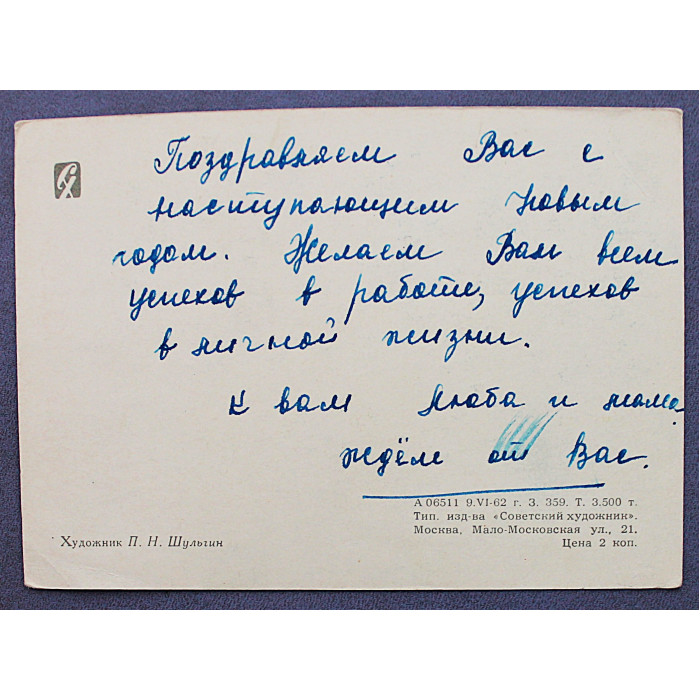 Поздравляем Вас с
наступающим Новым
годом. Желаем Вам всем
успехов в работе, успехов
в личной жизни.
К вам Люба и мама.
ждём от Вас.
А 06511 9.VI-62 г. З. 359. Т. 3.500 т.
Тип. изд-ва «Советский художник».
Москва, Мало-Московская ул., 21.
Цена 2 коп.
Художник П. Н. Шульгин